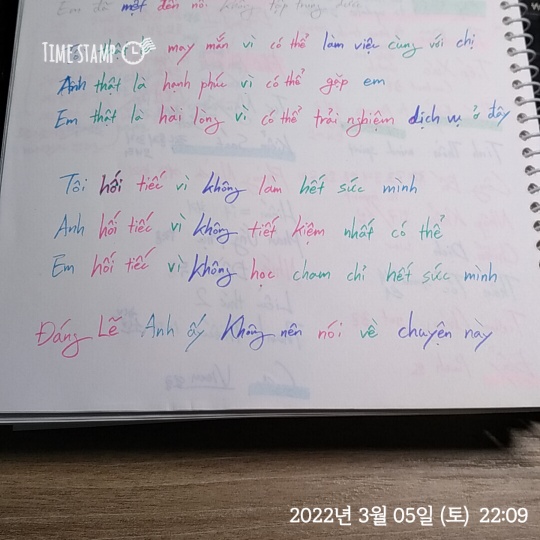 Em đã mệt đến nỗi không tập trung được
TIMESTAMP
thật là may mắn vì có thể làm việc cùng với chị
Anh thật là hạnh phúc vì có thể gặp em
Em thật là hài lòng vì có thể trải nghiệm dịch vụ ở đây
Tôi hối tiếc vì không làm hết sức mình
Anh hối tiếc vì không tiết kiệm nhất có thể
Em hối tiếc vì không học chăm chỉ hết sức mình
Đáng Lẽ Anh ấy Không nên nói về chuyện này
2022년 3월 05일 (토) 22:09